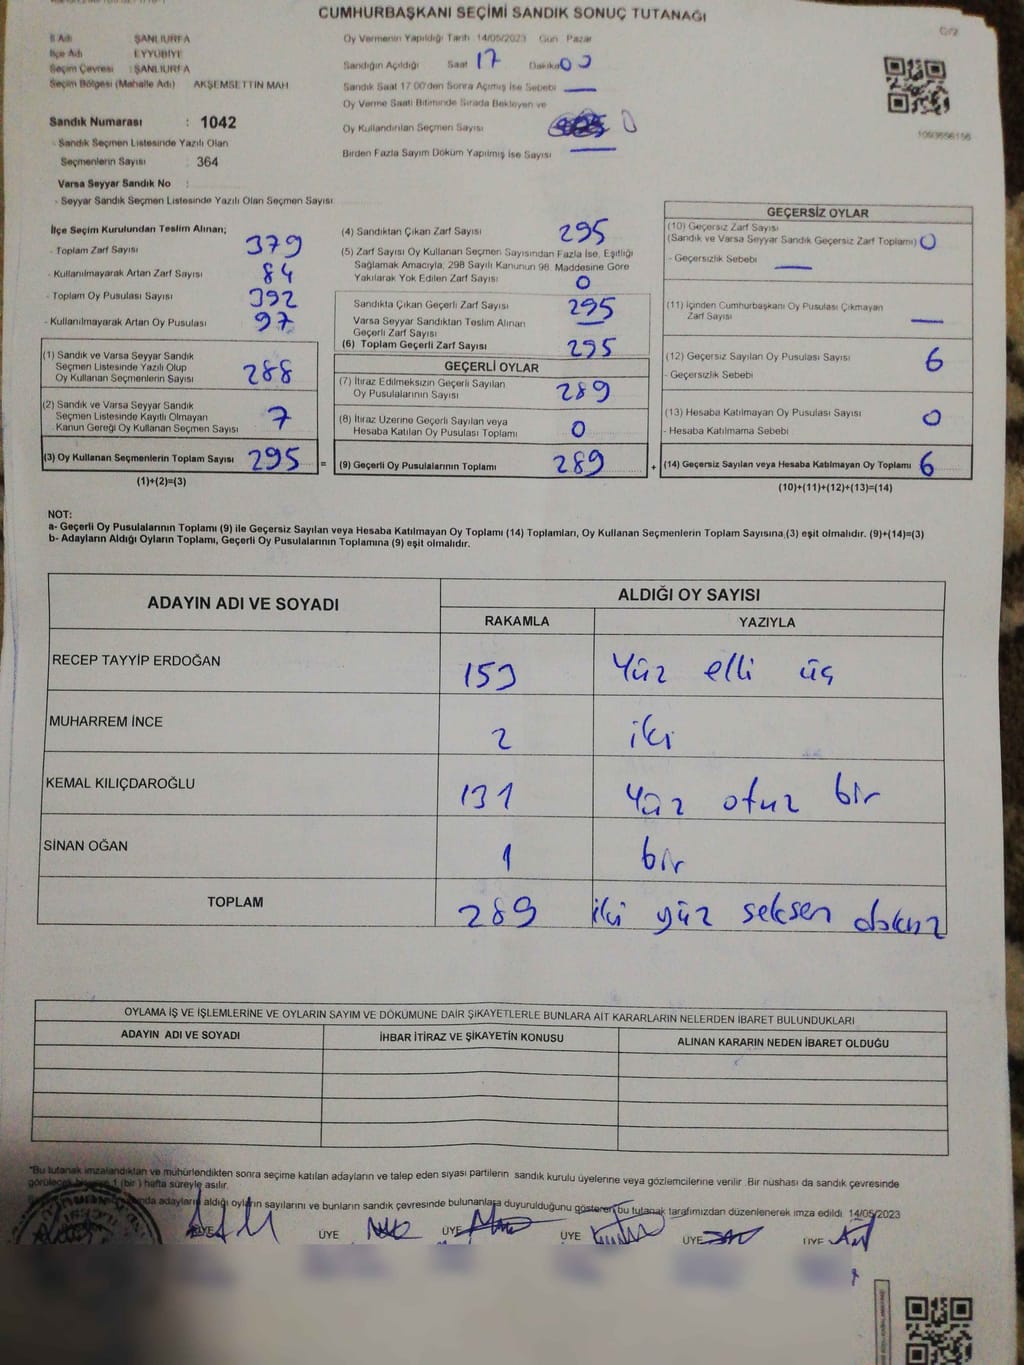 CUMHURBAŞKANI SEÇİMİ SANDIK SONUÇ TUTANAĞI
İl Adı : ŞANLIURFA
İlçe Adı : EYYÜBİYE
Seçim Çevresi : ŞANLIURFA
Seçim Bölgesi (Mahalle Adı) AKŞEMSETTİN MAH
Sandık Numarası : 1042
- Sandık Seçmen Listesinde Yazılı Olan
Seçmenlerin Sayısı : 364
Varsa Seyyar Sandık No :
- Seyyar Sandık Seçmen Listesinde Yazılı Olan Seçmen Sayısı
Oy Vermenin Yapıldığı Tarih 14/05/2023 Gün Pazar
Sandığın Açıldığı Saat 17 Dakika 00
Sandık Saat 17:00'den Sonra Açılmış İse Sebebi —
Oy Verme Saati Bitiminde Sırada Bekleyen ve
Oy Kullandırılan Seçmen Sayısı 0
Birden Fazla Sayım Döküm Yapılmış İse Sayısı —
İlçe Seçim Kurulundan Teslim Alınan;
- Toplam Zarf Sayısı 379
- Kullanılmayarak Artan Zarf Sayısı 84
- Toplam Oy Pusulası Sayısı 392
- Kullanılmayarak Artan Oy Pusulası 97
(1) Sandık ve Varsa Seyyar Sandık
Seçmen Listesinde Yazılı Olup
Oy Kullanan Seçmenlerin Sayısı 288
(2) Sandık ve Varsa Seyyar Sandık
Seçmen Listesinde Kayıtlı Olmayan
Kanun Gereği Oy Kullanan Seçmen Sayısı 7
(3) Oy Kullanan Seçmenlerin Toplam Sayısı 295 =
(1)+(2)=(3)
(4) Sandıktan Çıkan Zarf Sayısı 295
(5) Zarf Sayısı Oy Kullanan Seçmen Sayısından Fazla İse, Eşitliği
Sağlamak Amacıyla, 298 Sayılı Kanunun 98. Maddesine Göre
Yakılarak Yok Edilen Zarf Sayısı 0
Sandıkta Çıkan Geçerli Zarf Sayısı 295
Varsa Seyyar Sandıktan Teslim Alınan
Geçerli Zarf Sayısı —
(6) Toplam Geçerli Zarf Sayısı 295
GEÇERLİ OYLAR
(7) İtiraz Edilmeksizin Geçerli Sayılan
Oy Pusulalarının Sayısı 289
(8) İtiraz Üzerine Geçerli Sayılan veya
Hesaba Katılan Oy Pusulası Toplamı 0
(9) Geçerli Oy Pusulalarının Toplamı 289 +
GEÇERSİZ OYLAR
(10) Geçersiz Zarf Sayısı
(Sandık ve Varsa Seyyar Sandık Geçersiz Zarf Toplamı) 0
- Geçersizlik Sebebi —
(11) İçinden Cumhurbaşkanı Oy Pusulası Çıkmayan
Zarf Sayısı —
(12) Geçersiz Sayılan Oy Pusulası Sayısı 6
- Geçersizlik Sebebi
(13) Hesaba Katılmayan Oy Pusulası Sayısı 0
- Hesaba Katılmama Sebebi
(14) Geçersiz Sayılan veya Hesaba Katılmayan Oy Toplamı 6
(10)+(11)+(12)+(13)=(14)
NOT:
a- Geçerli Oy Pusulalarının Toplamı (9) ile Geçersiz Sayılan veya Hesaba Katılmayan Oy Toplamı (14) Toplamları, Oy Kullanan Seçmenlerin Toplam Sayısına (3) eşit olmalıdır. (9)+(14)=(3)
b- Adayların Aldığı Oyların Toplamı, Geçerli Oy Pusulalarının Toplamına (9) eşit olmalıdır.
ADAYIN ADI VE SOYADI ALDIĞI OY SAYISI
RAKAMLA YAZIYLA
RECEP TAYYİP ERDOĞAN 153 Yüz elli üç
MUHARREM İNCE 2 iki
KEMAL KILIÇDAROĞLU 131 Yüz otuz bir
SİNAN OĞAN 1 bir
TOPLAM 289 iki yüz seksen dokuz
OYLAMA İŞ VE İŞLEMLERİNE VE OYLARIN SAYIM VE DÖKÜMÜNE DAİR ŞİKAYETLERLE BUNLARA AİT KARARLARIN NELERDEN İBARET BULUNDUKLARI
ADAYIN ADI VE SOYADI İHBAR İTİRAZ VE ŞİKAYETİN KONUSU ALINAN KARARIN NEDEN İBARET OLDUĞU
*Bu tutanak imzalandıktan ve mühürlendikten sonra seçime katılan adayların ve talep eden siyasi partilerin sandık kurulu üyelerine veya gözlemcilerine verilir. Bir nüshası da sandık çevresinde
görülecek 1 (bir ) hafta süreyle asılır.
adayların aldığı oyların sayılarını ve bunların sandık çevresinde bulunanlara duyurulduğunu gösteren bu tutanak tarafımızdan düzenlenerek imza edildi. 14/05/2023
ÜYE ÜYE ÜYE ÜYE ÜYE ÜYE